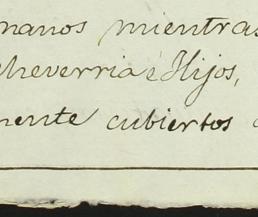 manos mientras
cheverria é Hijos,
mente cubiertos